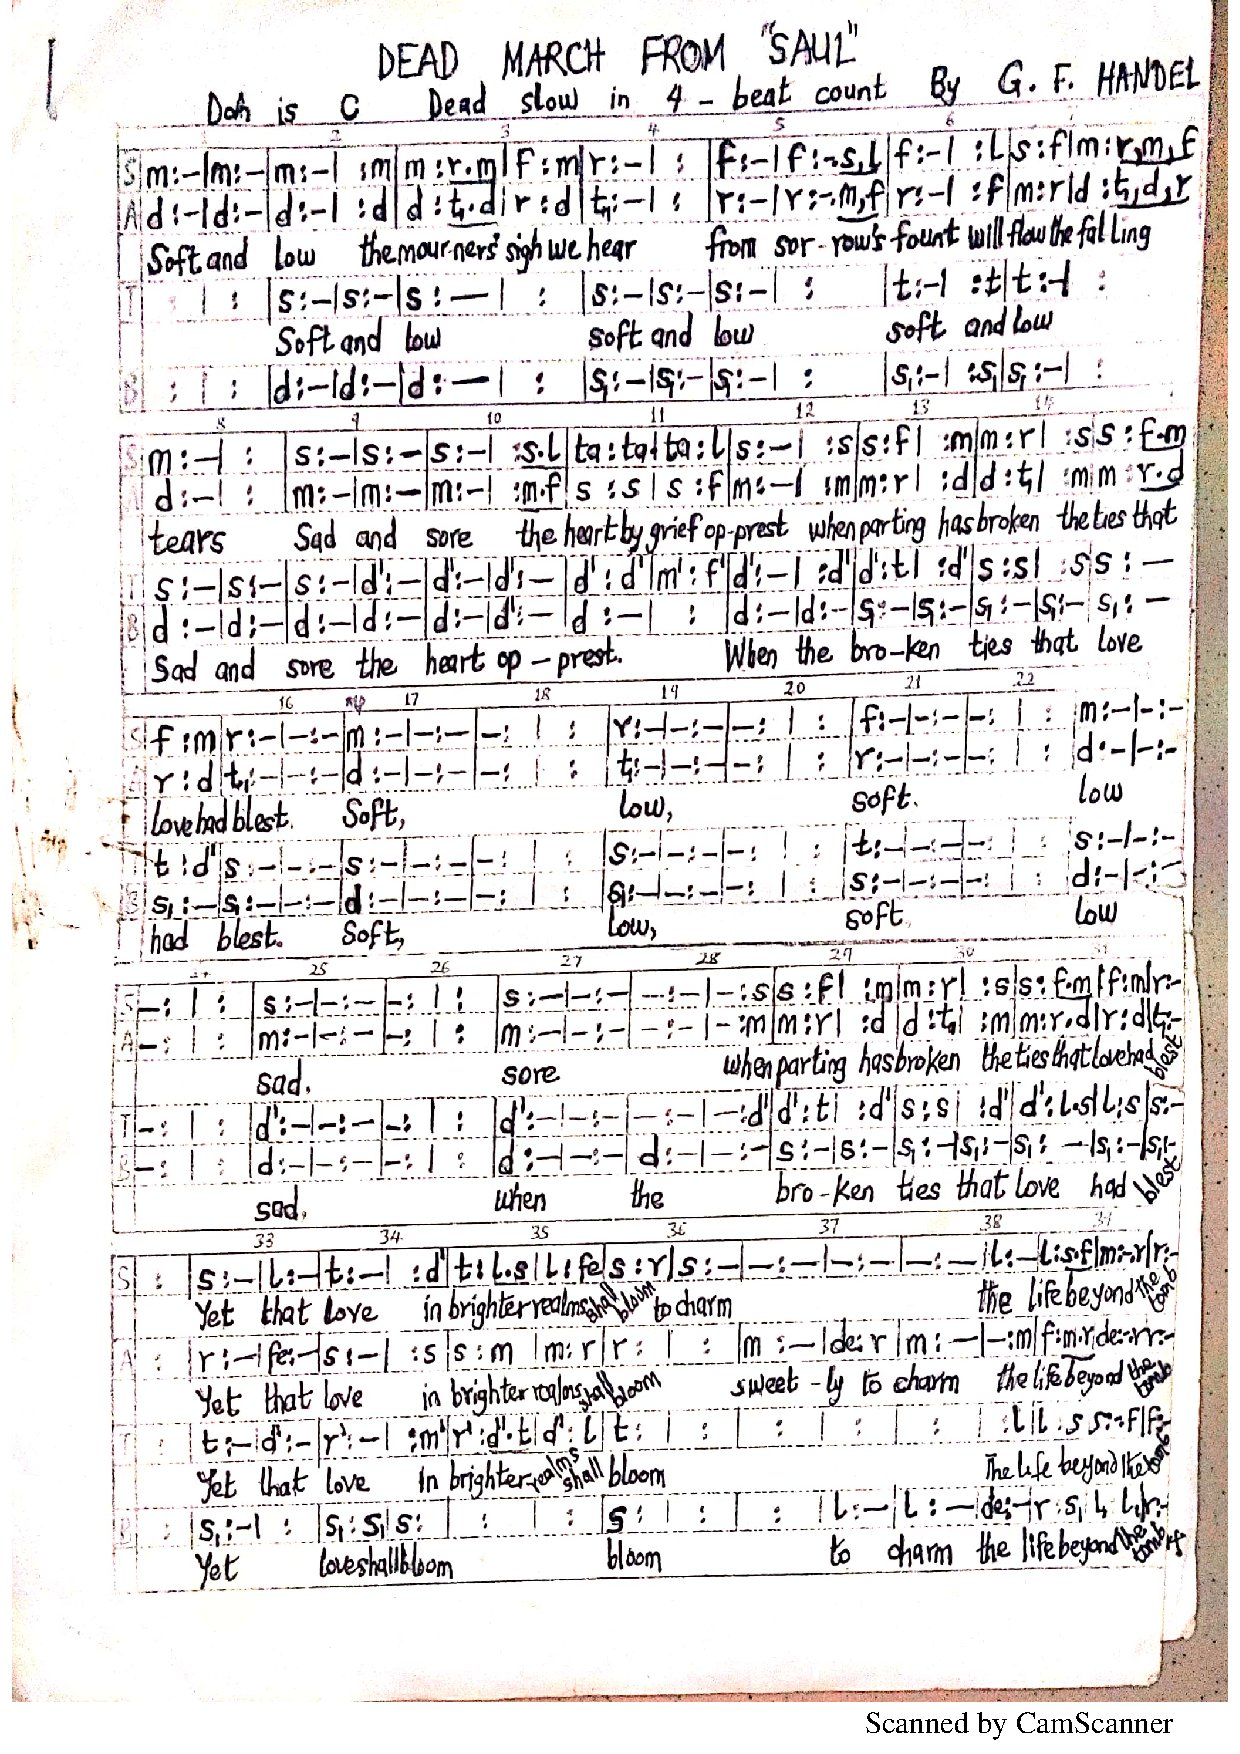 DEAD MARCH FROM "SAUL"
Doh is C Dead slow in 4 - beat count By G. F. HANDEL
2 3 4 5 6
S m:-|m:-|m:-| :m|m :r.m|f :m|r:-| : f:-|f:-.s,l|f:-| :l|s:f|m:r,m,f
A d:-|d:-|d:-| :d|d :t₁.d|r :d|t₁:-| : r:-|r:-.m,f|r:-| :f|m:r|d :t₁,d,r
Soft and low the mourners' sigh we hear from sor-row's fount will flow the falling
T : | : |s:-|s:-|s:—| : |s:-|s:-|s:-| : |t:-| :t|t:-| :
Soft and low soft and low soft and low
B : | : |d:-|d:-|d:—| : |s₁:-|s₁:-|s₁:-| : |s₁:-| :s₁|s₁:-| :
8 9 10 11 12 13 14
S m:-| : |s:-|s:-|s:-| :s.l|ta:ta|ta:l|s:-| :s|s:f| :m|m:r| :s|s:f.m
A d:-| : |m:-|m:-|m:-| :m.f|s :s|s :f|m:-| :m|m:r| :d|d:t₁| :m|m:r.d
tears Sad and sore the heart by grief op-prest when parting has broken the ties that
T s:-|s:-|s:-|d':-|d':-|d':-|d':d'|m':f'|d':-| :d'|d':t| :d'|s:s| :s|s:-
B d:-|d:-|d:-|d:-|d:-|d':-|d:-| : |d:-|d:-|s₁:-|s₁:-|s₁:-|s₁:-|s₁:-
Sad and sore the heart op-prest. When the bro-ken ties that love
16 17 18 19 20 21 22
S f:m|r:-|-:-|m:-|-:-|-: | : |r:-|-:-|-: | : |f:-|-:-|-: | : |m:-|-:-
r:d|t₁:-|-:-|d:-|-:-|-: | : |t₁:-|-:-|-: | : |r:-|-:-|-: | : |d:-|-:-
love had blest. Soft, low, soft. low
t:d'|s:-|-:-|s:-|-:-|-: | : |s:-|-:-|-: | : |t:-|-:-|-: | : |s:-|-:-
B s₁:-|s₁:-|-:-|d:-|-:-|-: | : |s₁:-|-:-|-: | : |s:-|-:-|-: | : |d:-|-:-
had blest. Soft, low, soft. low
25 26 27 28 29 30 31
S -: | : |s:-|-:-|-: | : |s:-|-:-|-:-|-:s|s:f| :m|m:r| :s|s:f.m|f:m|r:-
A -: | : |m:-|-:-|-: | : |m:-|-:-|-:-|-:m|m:r| :d|d:t₁| :m|m:r.d|r:d|t₁:-
sad. sore when parting has broken the ties that love had blest
T -: | : |d':-|-:-|-: | : |d':-|-:-|-:-|-:d'|d':t| :d'|s:s| :d'|d':l.s|l:s|s:-
B -: | : |d:-|-:-|-: | : |d:-|-:-|d:-|-:-|s:-|s:-|s₁:-|s₁:-|s₁:-|s₁:-|s₁:-
sad. when the bro-ken ties that love had blest
33 34 35 36 37 38 39
S : |s:-|l:-|t:-| :d'|t:l.s|l:fe|s:r|s:-|-:-|-:-|-:-|l:-|l:s.f|m:-.r|r:-
Yet that love in brighter realms shall bloom to charm the life beyond the tomb
A : |r:-|fe:-|s:-| :s|s:m|m:r|r: | : |m:-|de:r|m:-|-:m|f:m.r|de:-.r|r:-
Yet that love in brighter realms shall bloom sweet-ly to charm the life beyond the tomb
T : |t:-|d':-|r':-| :m'|r':d'.t|d':l|t: | : | : | : | : | :l|l:s|s:-.f|f:-
Yet that love in brighter realms shall bloom The life beyond the tomb
B : |s₁:-| : |s₁:s₁|s: | : | : |s: | : | : |l:-|l:-|de:-|r:s₁|l₁:l₁|r:-
Yet love shall bloom bloom to charm the life beyond the tomb
Scanned by CamScanner